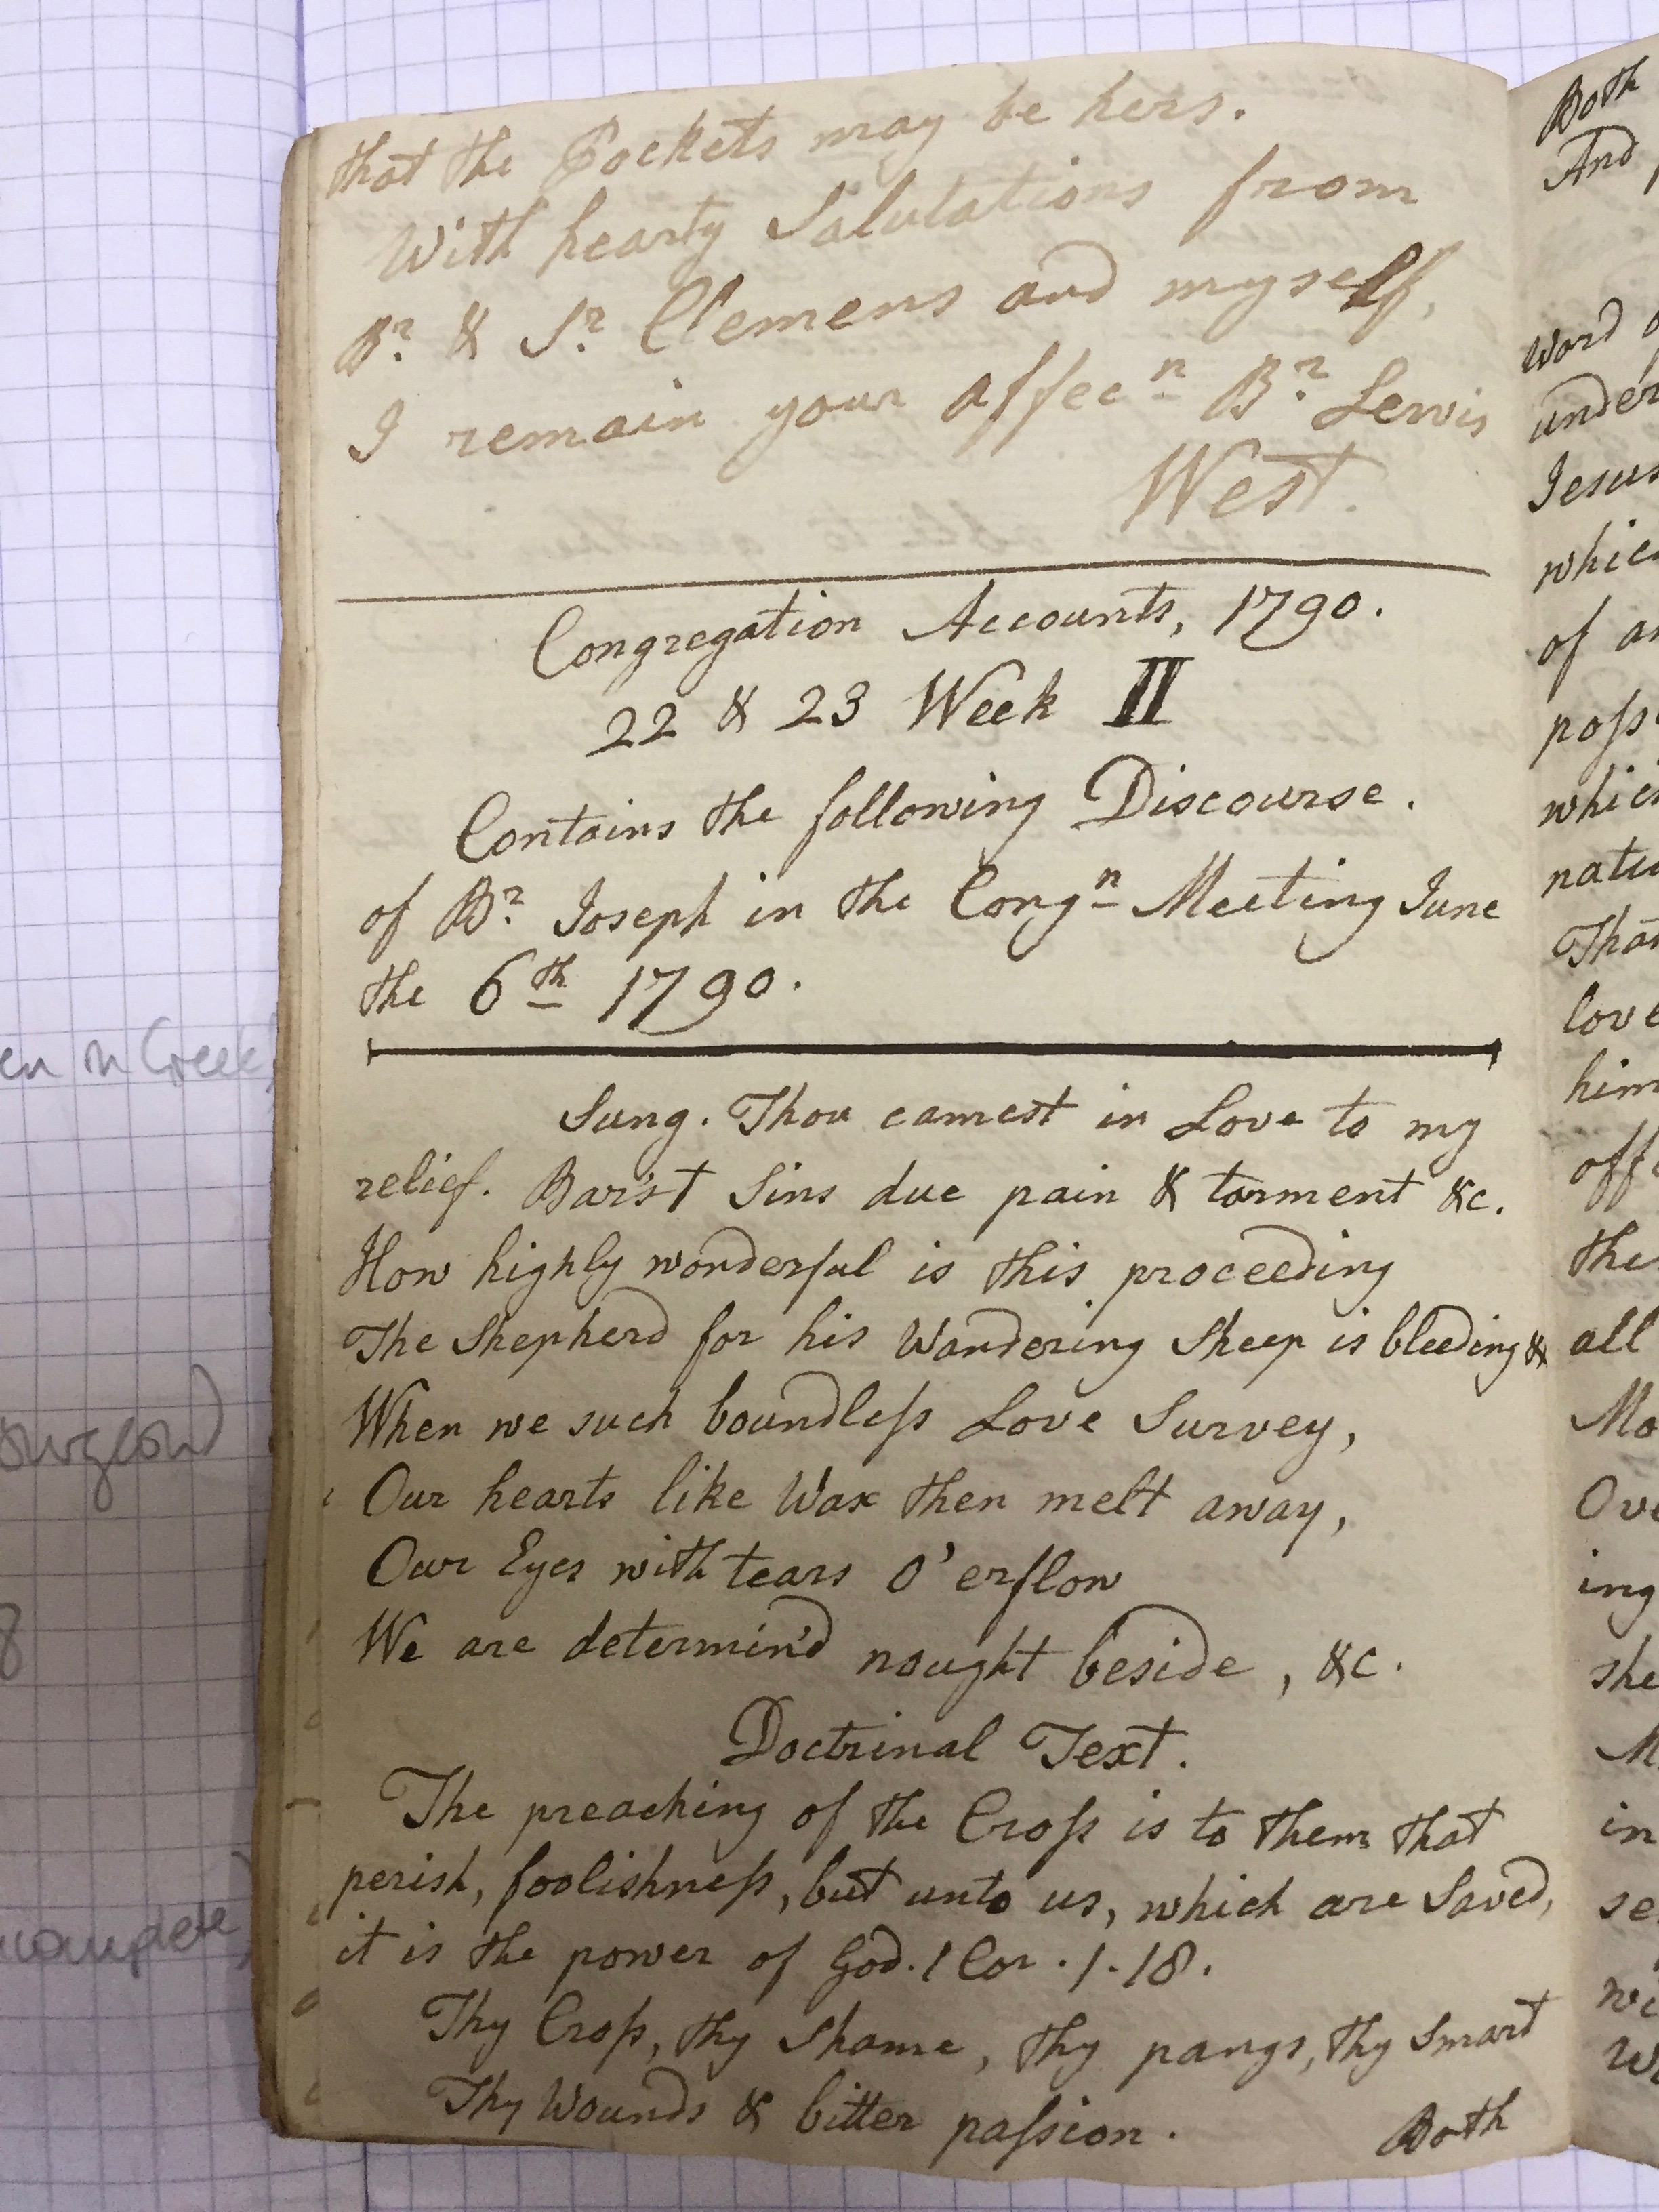 that the Pockets may be hers.
With hearty Salutations from
Br. & Sr. Clemens and myself,
I remain your affecn Br. Lewis
West.
Congregation Accounts, 1790.
22 & 23 Week II
Contains the following Discourse.
of Br. Joseph in the Congn Meeting June
the 6th 1790.
Sung. Thou camest in Love to my
relief. Barst Sins due pain & torment &c.
How highly wonderful is this proceeding
The Shepherd for his Wandering Sheep is bleeding &
When we such boundleſs Love Survey,
Our hearts like Wax then melt away,
Our Eyes with tears O'erflow
We are determin'd nought beside, &c.
Doctrinal Text.
The preaching of the Croſs is to them that
perish, foolishneſs, but unto us, which are Saved,
it is the power of God. 1 Cor. 1. 18.
Thy Croſs, thy Shame, thy pangs, thy Smart
Thy Wounds & bitter paſsion.
Both
Both
And
Word
under
Jesus
which
of
poſs
which
natu
love
him
off
the
all
Mo
Ove
ing
she
in
se